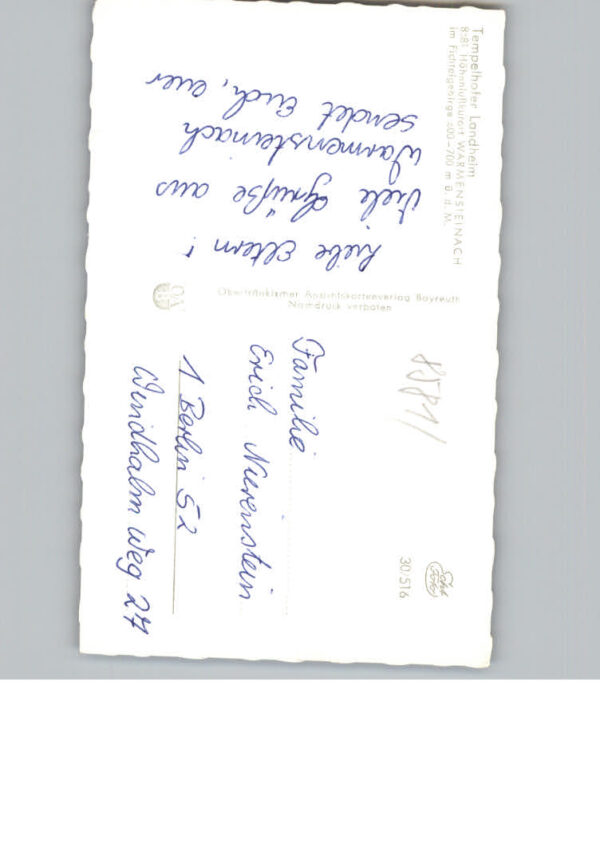 Tempelhofer Landheim
8581 Höhenluftkurort WARMENSTEINACH
im Fichtelgebirge 600-700 m ü. d. M.
Liebe Eltern!
Viele Grüße aus
Warmensteinach
sendet Euch, euer
Oberfränkischer Ansichtskartenverlag Bayreuth
Nachdruck verboten
8581/
30/516
Familie
Erich Nierenstein
1 Berlin 52
Windhalm Weg 27